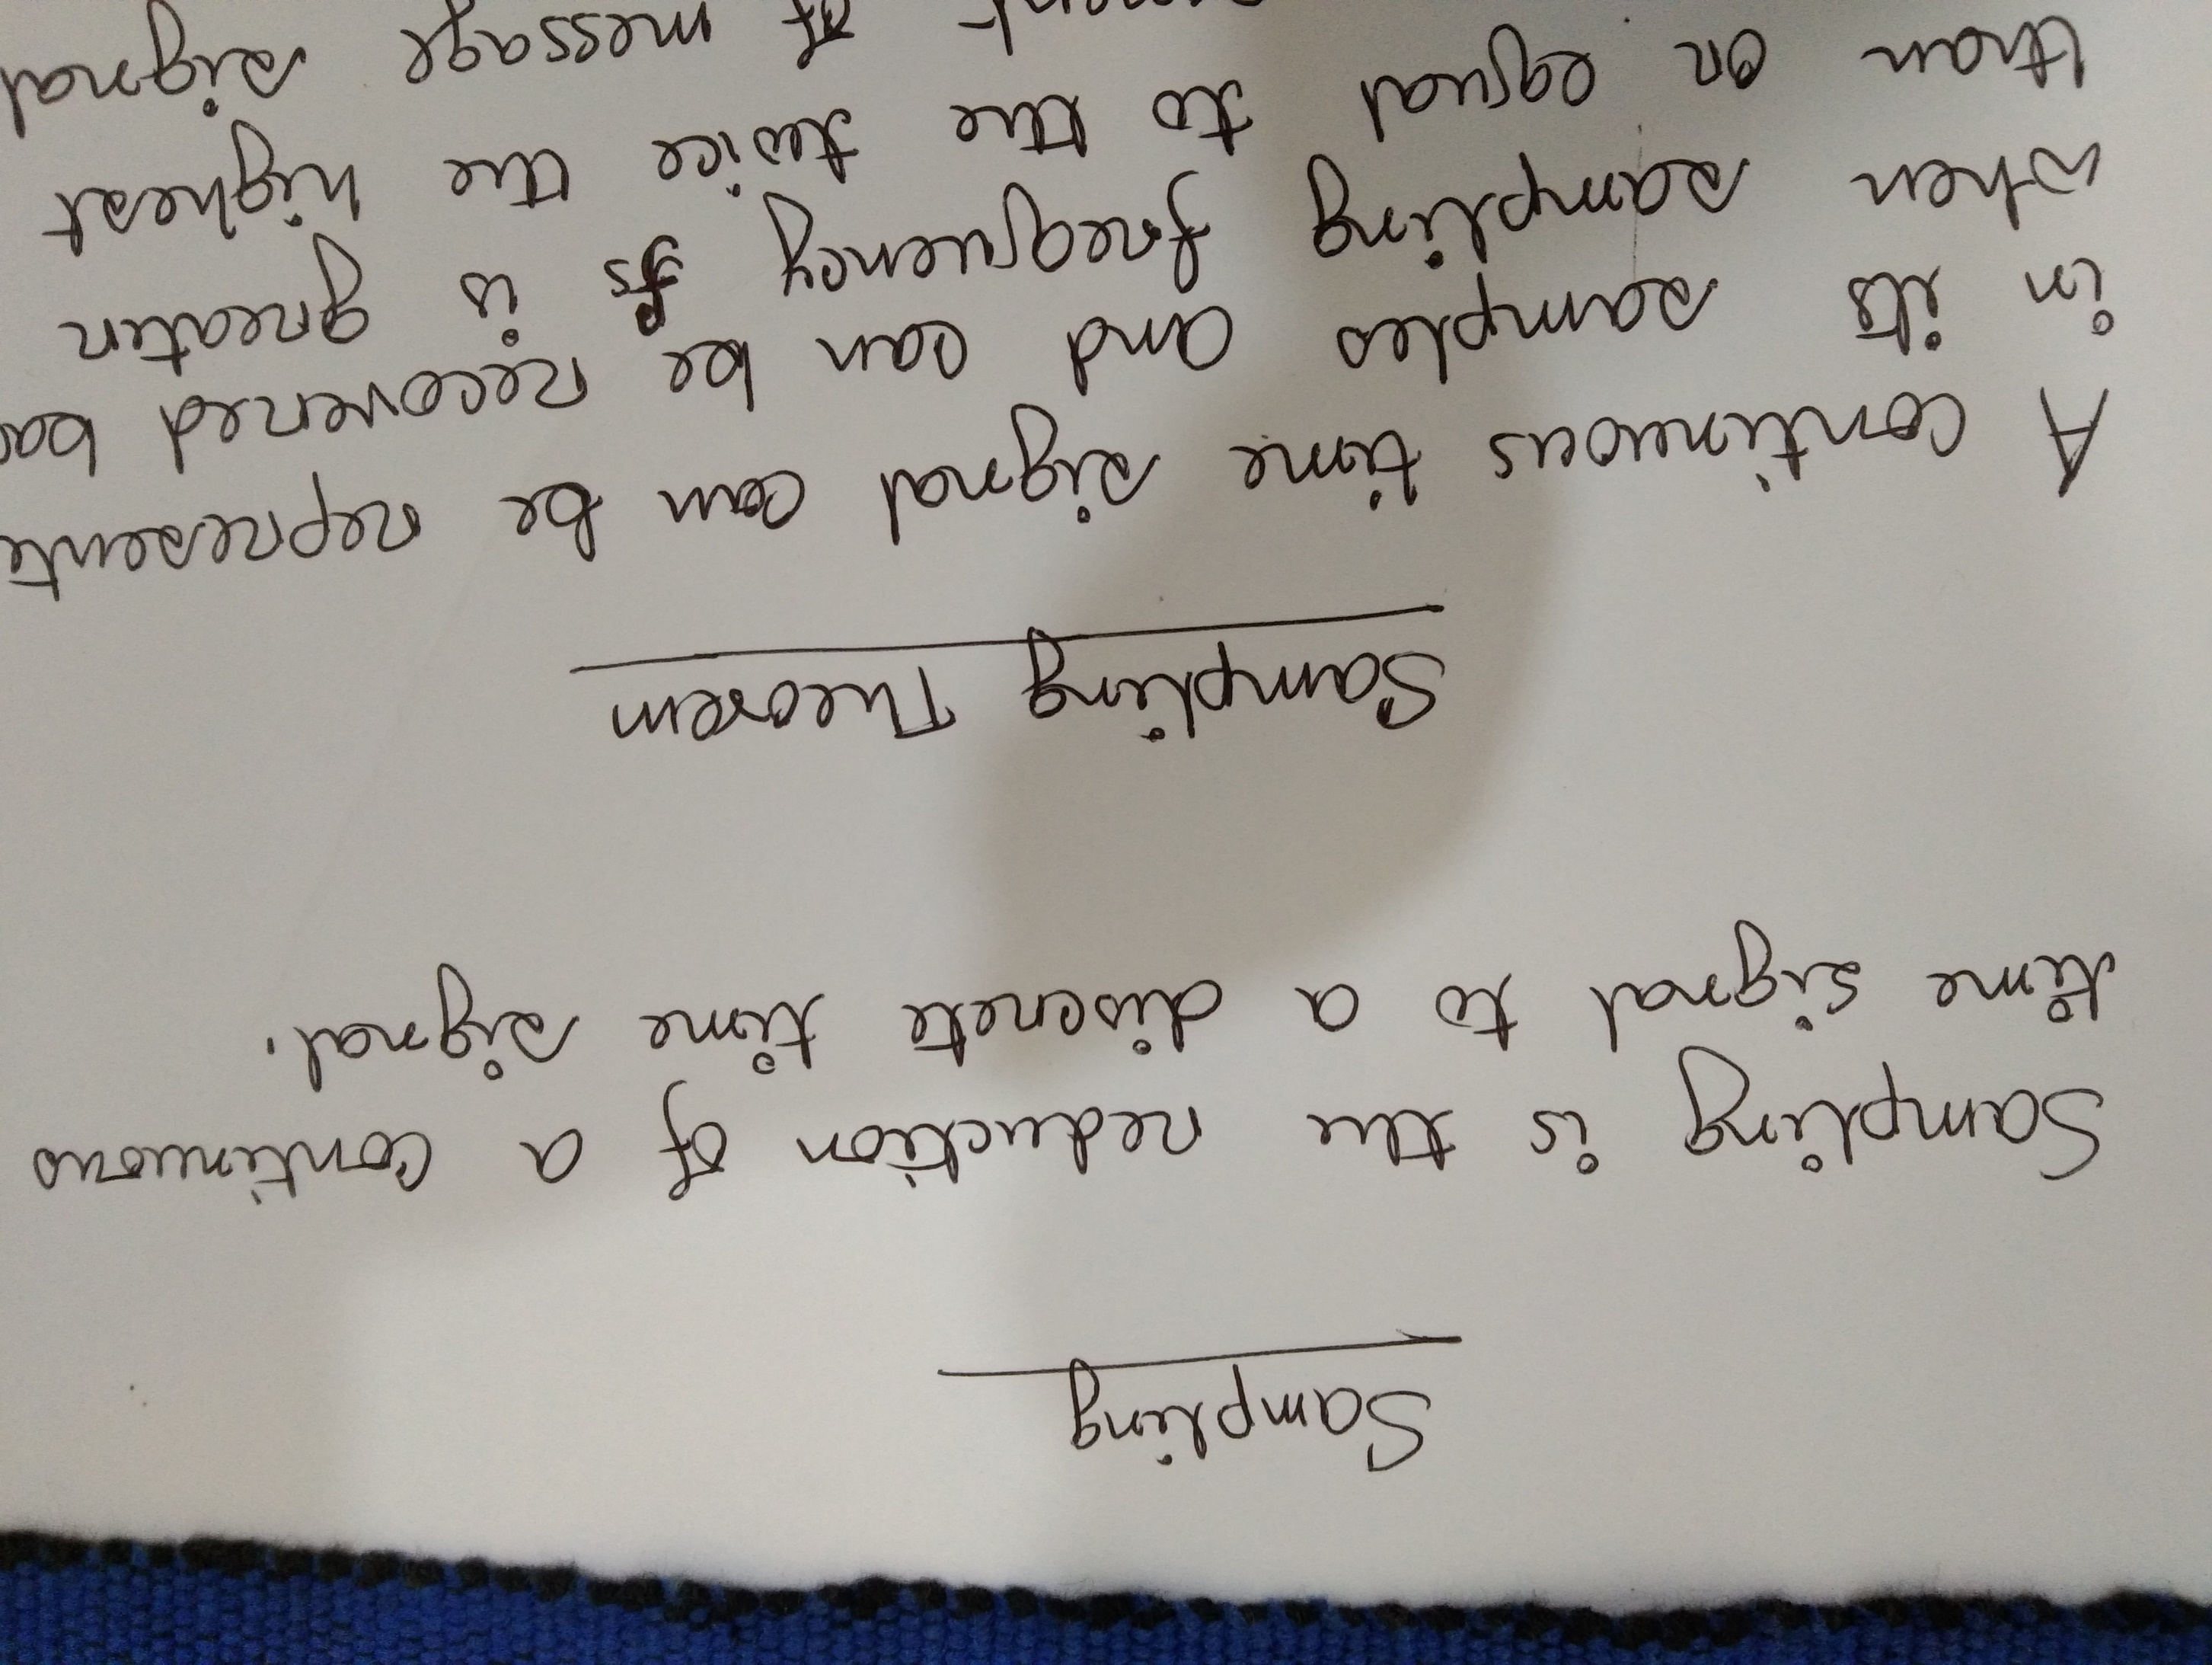 Sampling
Sampling is the reduction of a continuous
time signal to a discrete time signal.
Sampling Theorem
A continuous time signal can be represente
in its samples and can be recovered bac
when sampling frequency fs is greater
than or equal to the twice the highest
of message signal